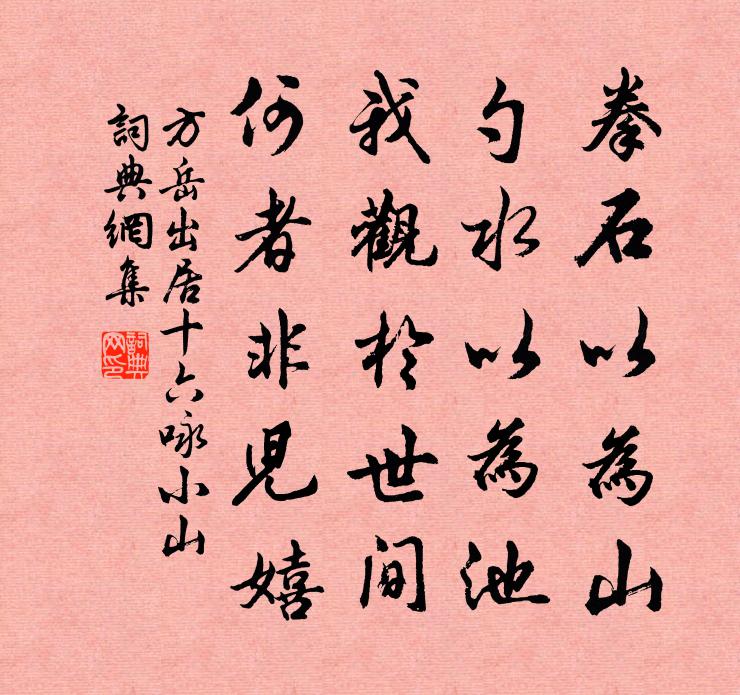 拳石以為山
勺水以為池
我觀於世間
何者非兒嬉
方岳出居十六咏小山
詞典網集
詞典网印